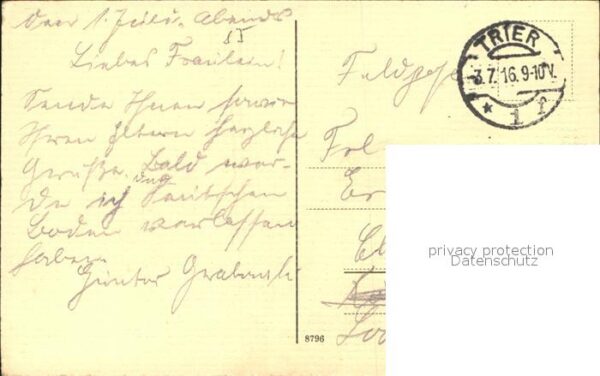 den 1. Juli. Abends
II
Liebes Fräulein!
Sende Ihnen sowie
Ihren Eltern herzliche
Grüße. Bald wer-
de ich den deutschen
Boden verlassen
haben
Günter Grabowski
8796
TRIER
3.7.16.9-10V.
* 1 f
Feldpost
Frl
privacy protection
Datenschutz